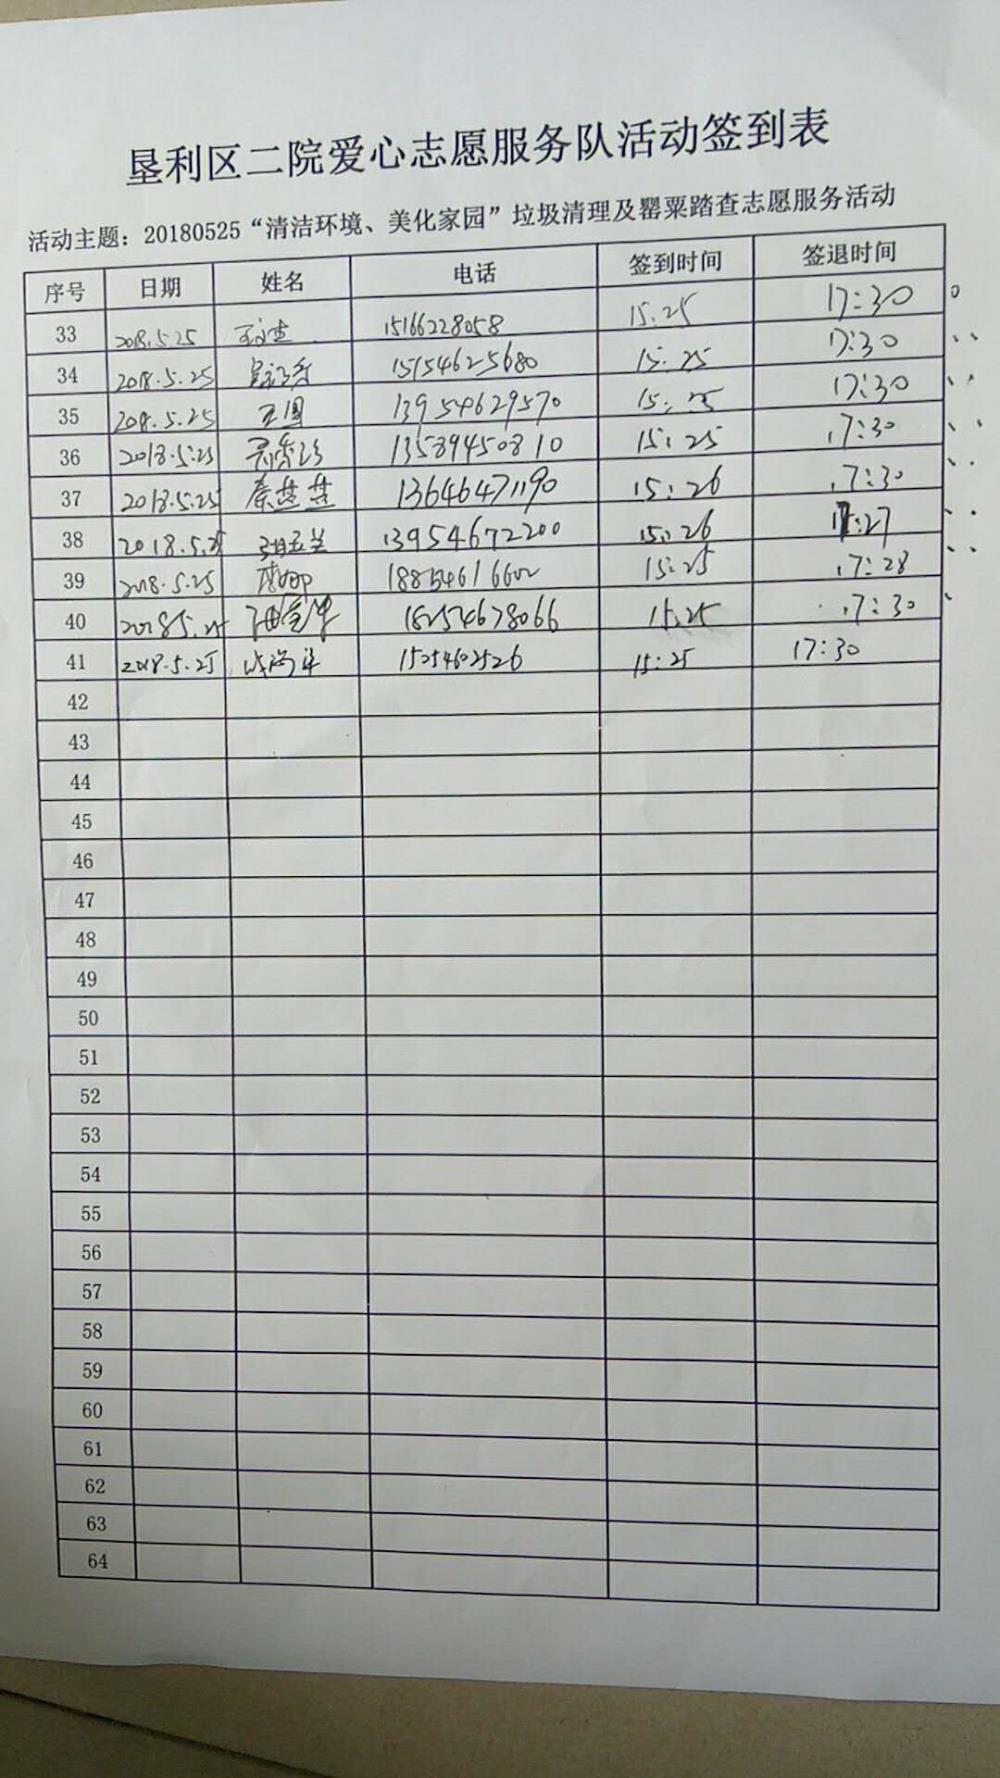 垦利区二院爱心志愿服务队活动签到表
活动主题：20180525“清洁环境、美化家园”垃圾清理及罂粟踏查志愿服务活动
序号 日期 姓名 电话 签到时间 签退时间
33 2018.5.25 15166228058 15:25 17:30
34 2018.5.25 15154625680 15:25 17:30
35 2018.5.25 王国 13954629570 15:25 17:30
36 2018.5.25 13589450810 15:25 17:30
37 2018.5.25 秦燕燕 13646471190 15:26 17:30
38 2018.5.25 胡玉兰 13954672200 15:26 17:27
39 2018.5.25 15:25 17:28
40 2018.5.25 18254678066 15:25 17:30
41 2018.5.25 15054602526 15:25 17:30
42
43
44
45
46
47
48
49
50
51
52
53
54
55
56
57
58
59
60
61
62
63
64